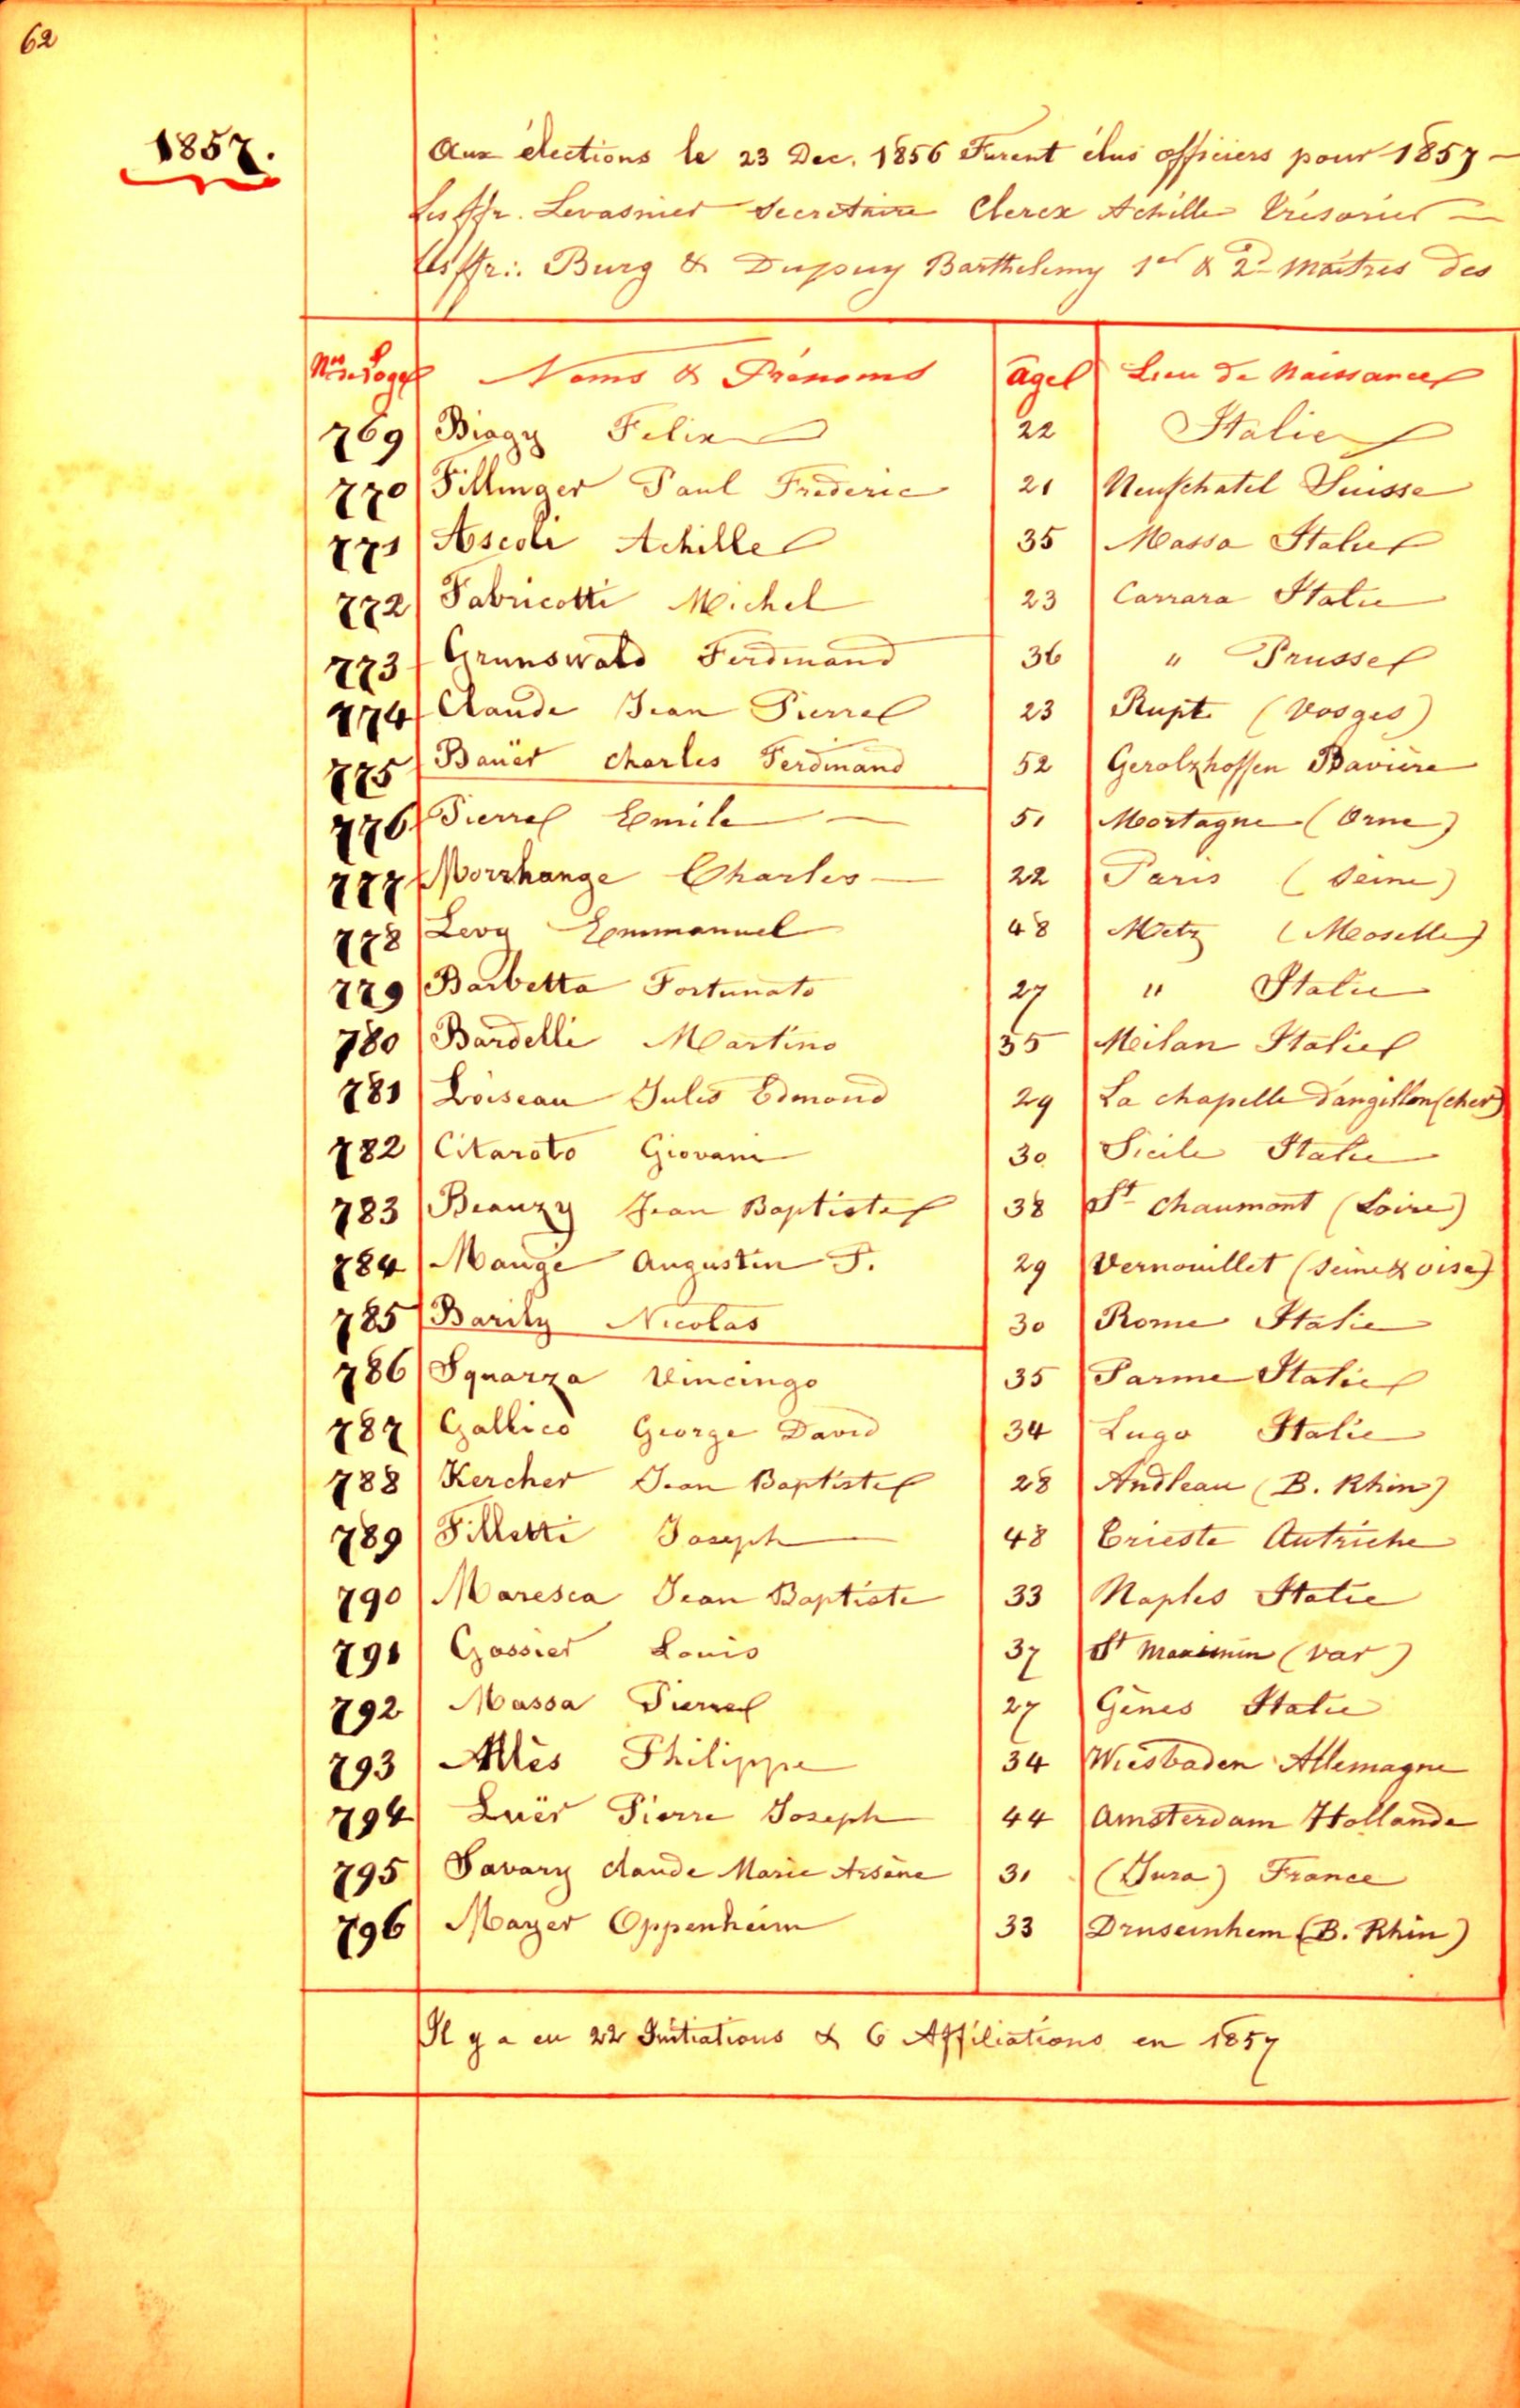 62
1857.
Aux élections le 23 Dec. 1856 Furent élus officiers pour 1857 —
Les ffr. Levasnier Secretaire Clerex Achille Trésorier —
Les ffr: Burg & Dupuy Barthelemy 1er & 2d Maitres des
Noms & Prénoms Age Lieu de Naissance
769 Biagy Felix 22 Italie
770 Fillinger Paul Frederic 21 Neufchatel Suisse
771 Ascoli Achille 35 Massa Italie
772 Fabricotti Michel 23 Carrara Italie
773 Grunswald Ferdinand 36 " Prusse
774 Claude Jean Pierre 23 Rupt (Vosges)
775 Bauër Charles Ferdinand 52 Gerolzhoffen Bavière
776 Pierre Emile — 51 Mortagne (Orne)
777 Morrhange Charles — 22 Paris (Seine)
778 Levy Emmanuel 48 Metz (Moselle)
779 Barbetta Fortunato 27 " Italie
780 Bardelli Martino 35 Milan Italie
781 Loiseau Jules Edmond 29 La chapelle d'angillon (cher)
782 Citaroto Giovani 30 Sicile Italie
783 Beauzy Jean Baptiste 38 St Chaumont (Loire)
784 Maugé Augustin F. 29 Vernouillet (Seine & Oise)
785 Barily Nicolas 30 Rome Italie
786 Squarza Vincingo 35 Parme Italie
787 Gallico George David 34 Lugo Italie
788 Kercher Jean Baptiste 28 Andleau (B. Rhin)
789 Filletti Joseph 48 Trieste Autriche
790 Maresca Jean Baptiste 33 Naples Italie
791 Gossier Louis 37 St Maximin (Var)
792 Massa Pierre 27 Gênes Italie
793 Allès Philippe 34 Wiesbaden Allemagne
794 Luër Pierre Joseph 44 Amsterdam Hollande
795 Savary Claude Marie Arsène 31 (Jura) France
796 Mayer Oppenheim 33 Druseinhem (B. Rhin)
Il y a eu 22 Initiations & 6 Affiliations en 1857